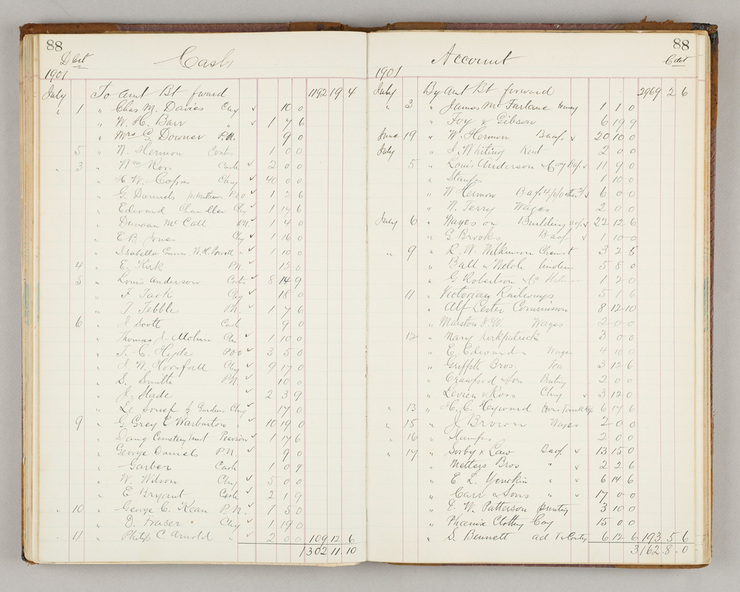 88
Cash
1901
July To amt Bt forwd 1192 19 4
" 1 " Chas M. Davies Chq 10 0
" W. H. Barr " 1 7 6
" Mrs G Downer P.N. 9 0
5 " N. Hermon Cash 1 0 0
" 3 " Wm Ross Cash 2 0 0
" H. W. Chq 40 0 0
" G. Daniels P.N. 1 2 6
" Edmond Chandler Chq 1 4 6
" Duncan McColl P.N. 1 4 0
" E. B. Jones Chq 1 6 0
" Isabella 1 10 0
4 " E. Kirk P.N. 12 0
5 " Louis Anderson Cash 8 14 9
" F. Tuck Chq 18 0
" J. Tebble P.N. 1 7 6
6 " J Scott Cash 9 0
" Thomas J. Chq 1 10 0
" T. C. Hyde P.O.O 3 5 0
" J. W. Horsfall Chq 9 17 0
" S. Smith P.N. 10 0
" H. Hyde 2 3 9
" Le Souef Gardens Chq 17 0
9 " G. Grey & Warburton 10 19 0
" 1 7 6
" George Daniels P.N. 9 0
" Garber Cash 1 0 9
" W. Wilson Chq 5 0 0
" E Bryant Cash 2 1 9
" 10 " George C. Kean P.N. 1 5 0
" D. Fraser " Chq 1 19 0
" 11 " Philip C Arnold " 2 0 0 109 12 6
1302 11 10
Account
88
1901
July By amt Bt forwd 2969 2 6
" 3 " James McFarlane 1 1 0
" Foy & Gibson 6 19 9
June 19 " W. Hermon 20 10 0
July " J. Whiting Rent 2 0 0
5 " Louis Anderson 11 9 0
" Stamps 1 10 0
" N Hermon 6 0 0
" N. Terry Wages 2 0 0
July 6 " Wages on Building 22 12 6
" G Brooks 1 10 0
" 9 " R. W. Wilkinson Chemist 3 2 5
" Ball & Welch 5 8 0
" G Robertson 1 2 0
11 " Victorian Railways 5 1 6
" Alf Ester Commission 8 12 10
" Marston F.W. Wages 2 0 0
12 " Mary Kirkpatrick 3 0 0
" E. Edmond " Wages 4 10 0
" Griffith Bros Tea 3 12 6
" Crawford & Son 2 0 0
" Levien & Ross 3 12 0
" 13 " H. C. Heyward 6 17 6
" 15 " J Brown Wages 2 0 0
" 16 " Stamps 2 0 0
" 17 " Selby & Law 13 15 0
" Metters Bros " 2 2 6
" E L Yencken " 6 14 6
" Carr & Sons " 17 0 0
" G. W. Patterson 3 10 0
" Phoenix Clothing Coy 15 0 0
" S. Bennett ad 6 12 6 193 5 6
3162 8 0